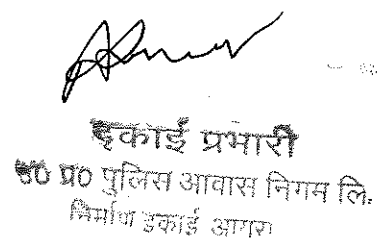 इकाई प्रभारी
उ0 प्र0 पुलिस आवास निगम लि.
निर्माण इकाई आगरा